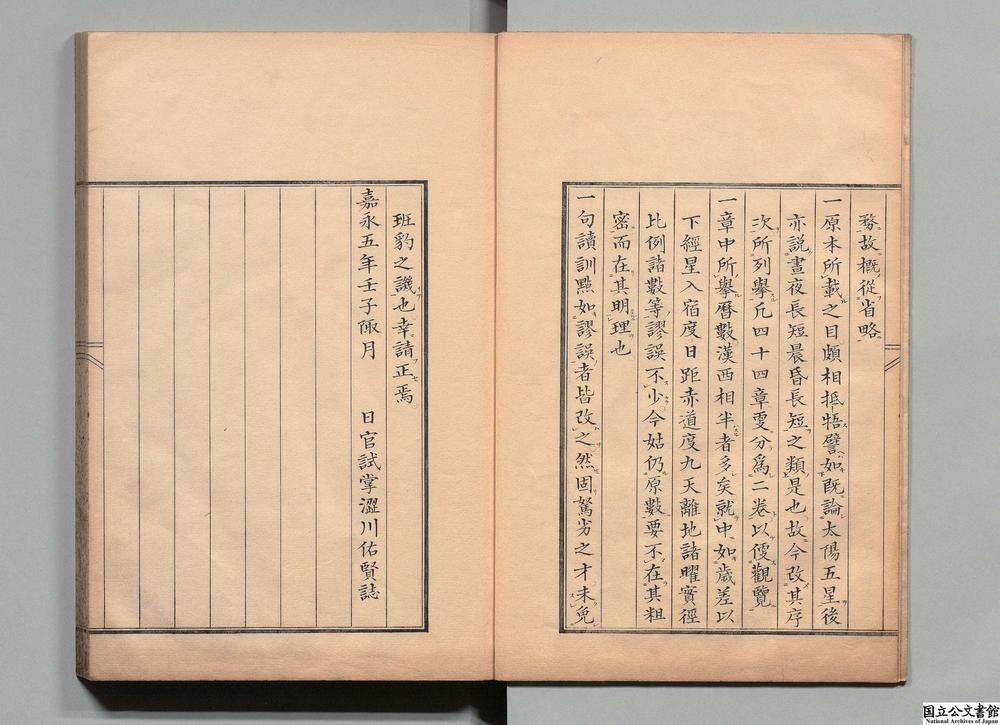 務故概從省略
一原本所載之目頗相抵牾譬如既論太陽五星後
亦說晝夜長短晨昏長短之類是也故今改其序
次所列舉凡四十四章更分爲二卷以便觀覽
一章中所舉曆數漢西相半者多矣就中如歲差以
下經星入宿度日距赤道度九天離地諸曜實徑
比例諸數等謬誤不少今姑仍原數要不在其粗
密而在其明理也
一句讀訓點如謬誤者皆改之然固駑劣之才未免
班豹之譏也幸請正焉
嘉永五年壬子陬月　日官試掌澀川佑賢誌
国立公文書館
National Archives of Japan